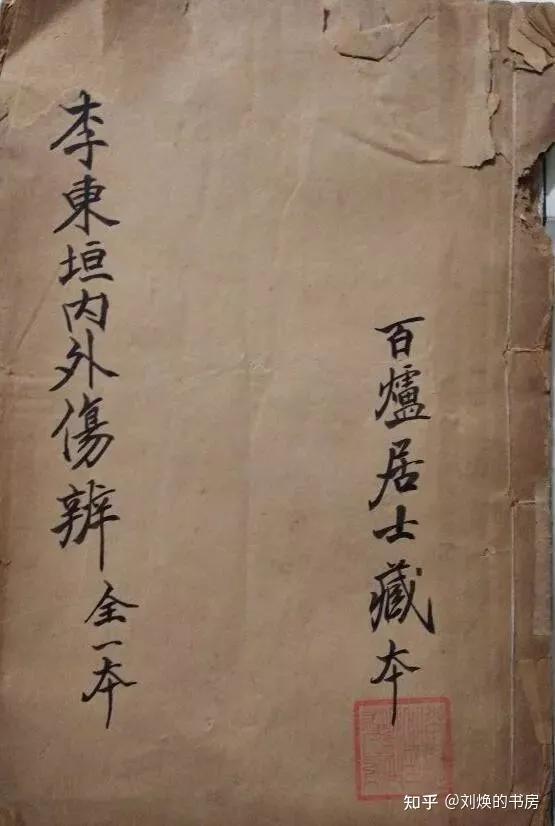 百爐居士藏本
李東垣內外傷辨 全一本
知乎 @刘焕的书房